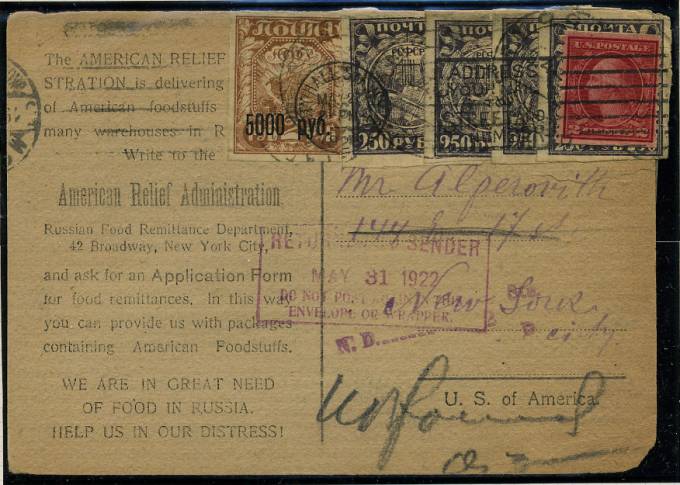 The AMERICAN RELIEF
STRATION is delivering
of American foodstuffs
many warehouses in R
Write to the
American Relief Administration
Russian Food Remittance Department,
42 Broadway, New York City,
and ask for an Application Form
for food remittances. In this way
you can provide us with packages
containing American Foodstuffs.
WE ARE IN GREAT NEED
OF FOOD IN RUSSIA.
HELP US IN OUR DISTRESS!
5000 руб.
ПОЧТА
РСФСР
250 РУБ
ПОЧТА
250 РУБ
250
U.S. POSTAGE
ADDRESS
YOUR
Mr Alperovith
144 E 17 st
New York
City
SENDER
MAY 31 1922
DO NOT POST
ENVELOPE OR WRAPPER.
N. D.
U. S. of America.